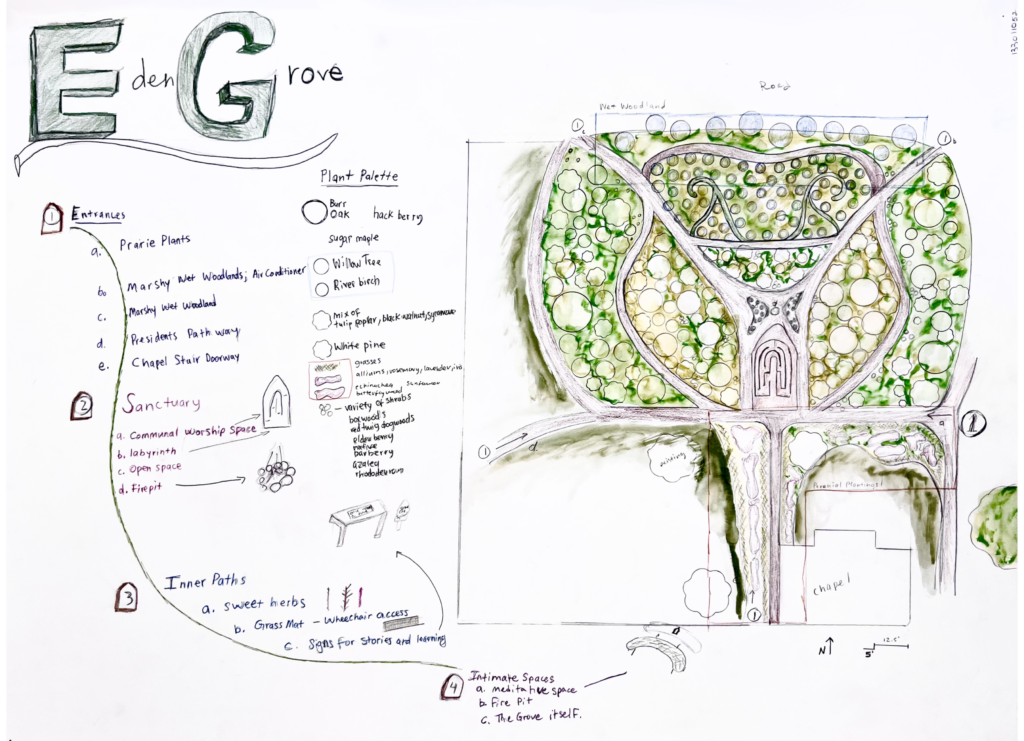 Eden Grove
1332011052
Road
Wet Woodland
Plant Palette
Burr
Oak
hack berry
sugar maple
Willow Tree
River birch
mix of
tulip poplar, black walnut, sycamore
White pine
grasses
alliums, rosemary, lavender, iris
echinachea
butterfly weed
variety of shrubs
boxwoods
red twig dogwoods
elderberry
barberry
azaley
rhododendron
1 Entrances
a. Prarie Plants
b. Marshy Wet Woodlands; Air Conditioner
c. Marshy Wet Woodland
d. Presidents Path way
e. Chapel Stair Doorway
2 Sanctuary
a. Communal Worship Space
b. labyrinth
c. Open space
d. Firepit
3 Inner Paths
a. sweet herbs
b. Grass Mat - Wheechair access
c. Signs For Stories and learning
4 Intimate Spaces
a. meditative space
b. Fire Pit
c. The Grove itself.
1 c
1 b
1 d.
1 a
1
existing
Perenial Plantings
chapel
N
5'
12.5'